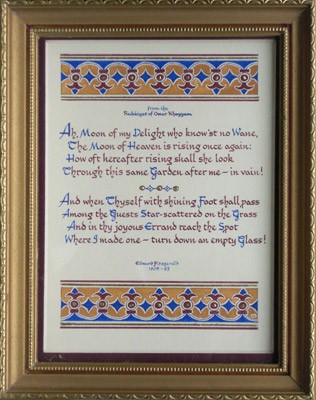 from the
Rubáiyát of Omar Khayyam
Ah, Moon of my Delight who know'st no Wane,
The Moon of Heaven is rising once again:
How oft hereafter rising shall she look
Through this same Garden after me – in vain!
And when Thyself with shining Foot shall pass
Among the Guests Star-scattered on the Grass
And in thy joyous Errand reach the Spot
Where I made one – turn down an empty Glass!
Edward Fitzgerald